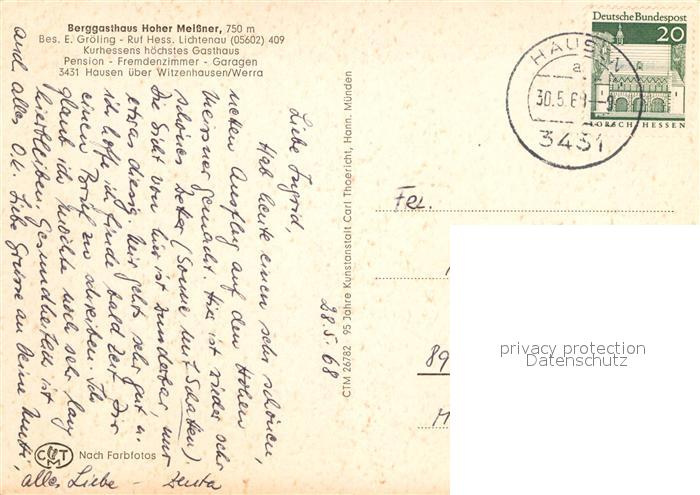 Berggasthaus Hoher Meißner, 750 m
Bes. E. Gröling - Ruf Hess. Lichtenau (05602) 409
Kurhessens höchstes Gasthaus
Pension - Fremdenzimmer - Garagen
3431 Hausen über Witzenhausen/Werra
28.5.68
Liebe Ingrid,
Hab heute einen sehr schönen,
netten Ausflug auf den Hohen
Meissner gemacht. Hier ist wieder sehr
schönes Wetter (Sonne und Schatten).
Die Sicht von hier ist wunderbar, nur
etwas diesig. Mir gehts sehr gut u.
ich hoffe ich finde bald Zeit Dir
einen Brief zu schreiben. Ich
glaub ich möchte noch sehr lang
hierbleiben. Gesundheitlich ist
auch alles O.K. Liebe Grüsse an Deine Mutti,
alles Liebe - Jenta
Nach Farbfotos
CTM 26782 95 Jahre Kunstanstalt Carl Thoericht, Hann. Münden
Deutsche Bundespost
20
LORSCH-HESSEN
HAUSEN
a
30.5.68--9
3431
Frl.
89
M
privacy protection
Datenschutz